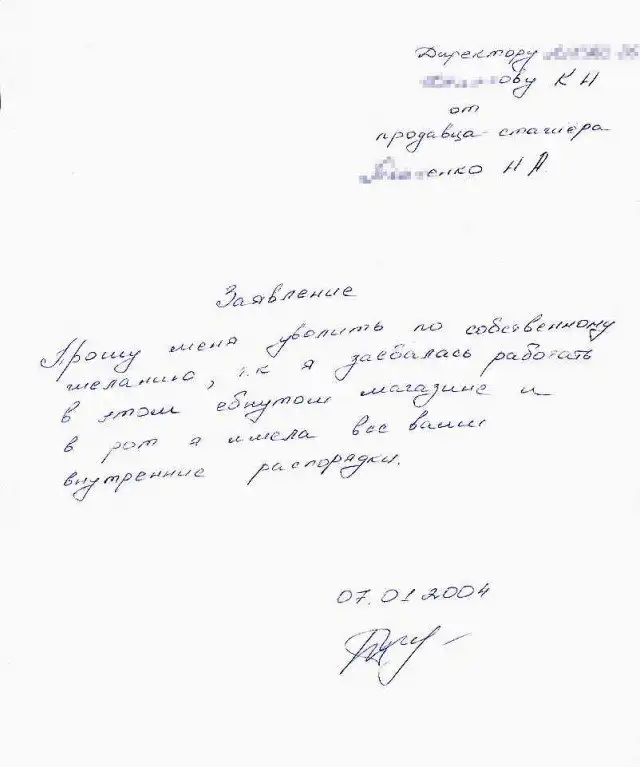 Директору
ову К Н
от
продавца-стагиёра
енко Н А.
Заявление
Прошу меня уволить по собственному
желанию, т.к я заебалась работать
в этом ебнутом магазине и
в рот я имела все ваши
внутренние распорядки.
07.01 2004